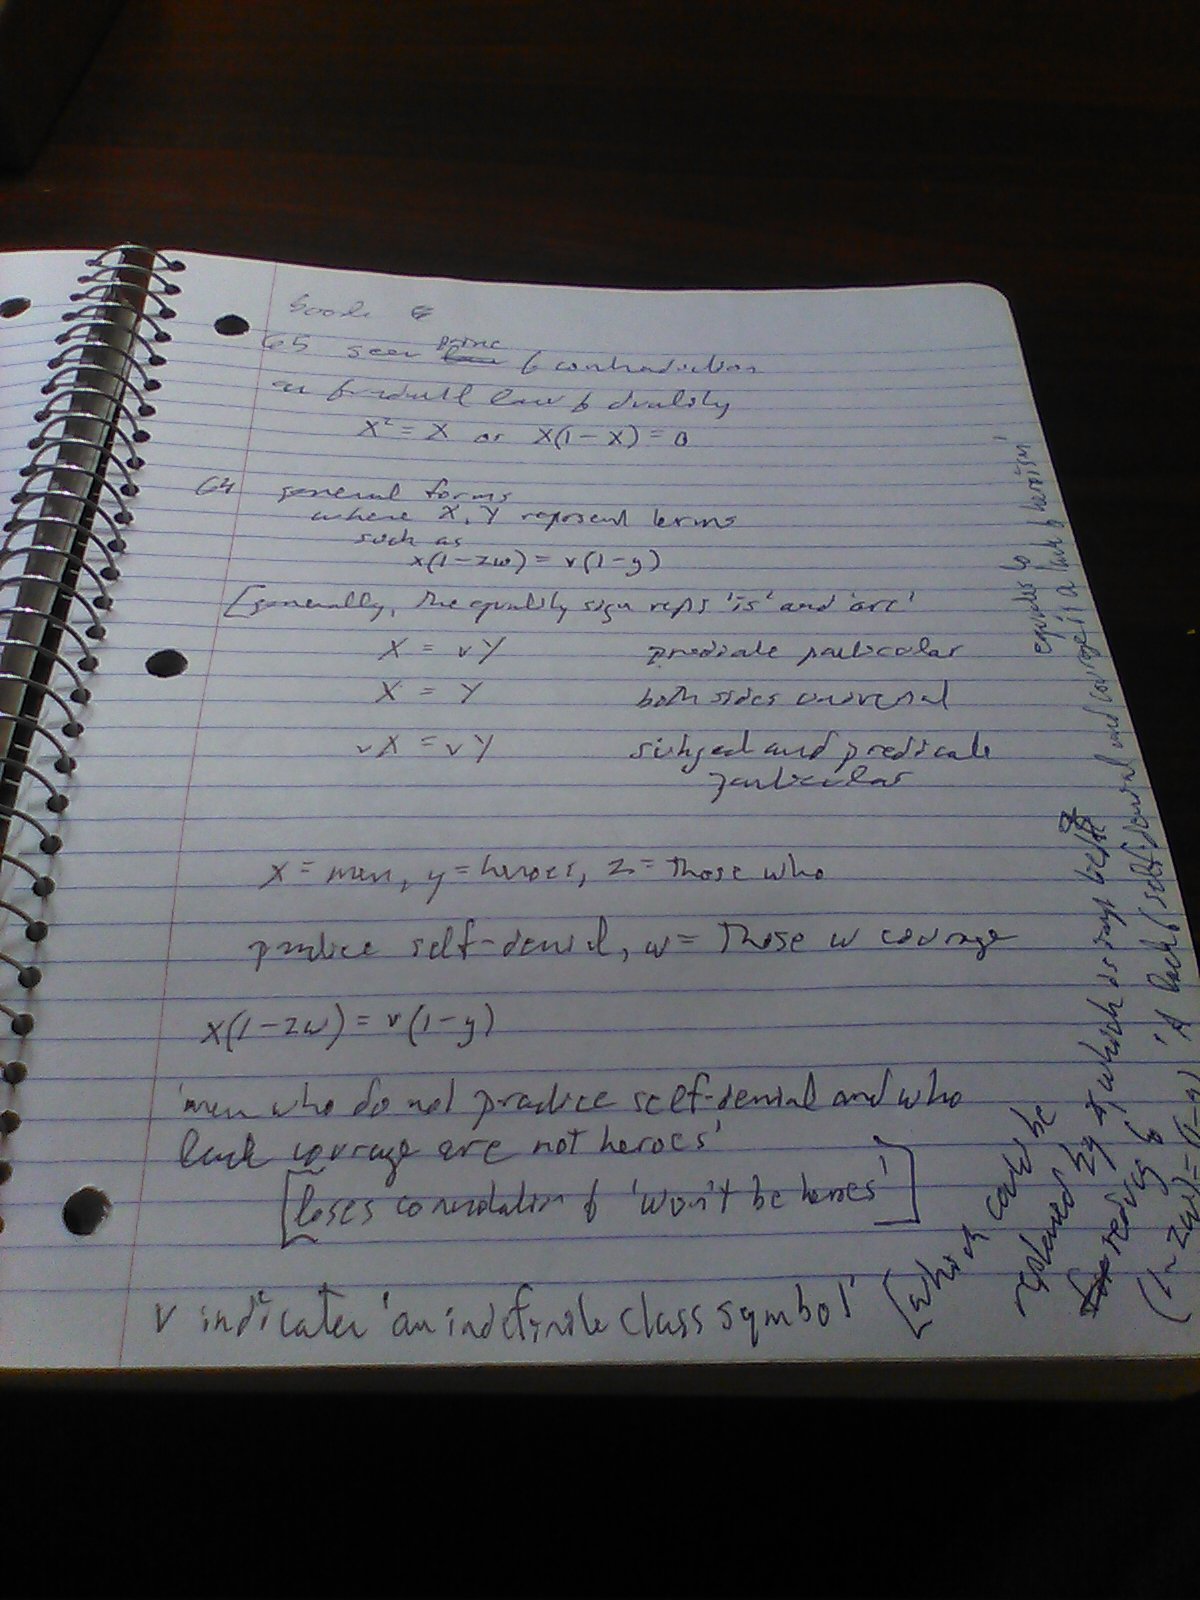 Boole
65 sees princ of contradiction
as law of duality
X² = X or X(1 - X) = 0
64 general forms
where X, Y represent terms
such as
x(1 - zw) = v(1 - y)
[generally, the equality sign reps 'is' and 'are'
X = vY predicate particular
X = Y both sides universal
vX = vY subject and predicate
particular
x = men, y = heroes, z = those who
practice self-denial, w = those w courage
x(1 - zw) = v(1 - y)
'men who do not practice self-denial and who
lack courage are not heroes'
[loses connotation of 'won't be heroes']
v indicates 'an indefinite class symbol'
[which could be
replaced by which is
reducing to
(1 - zw) = (1 - y) 'A lack of self denial and courage is a lack of heroism'
equates to